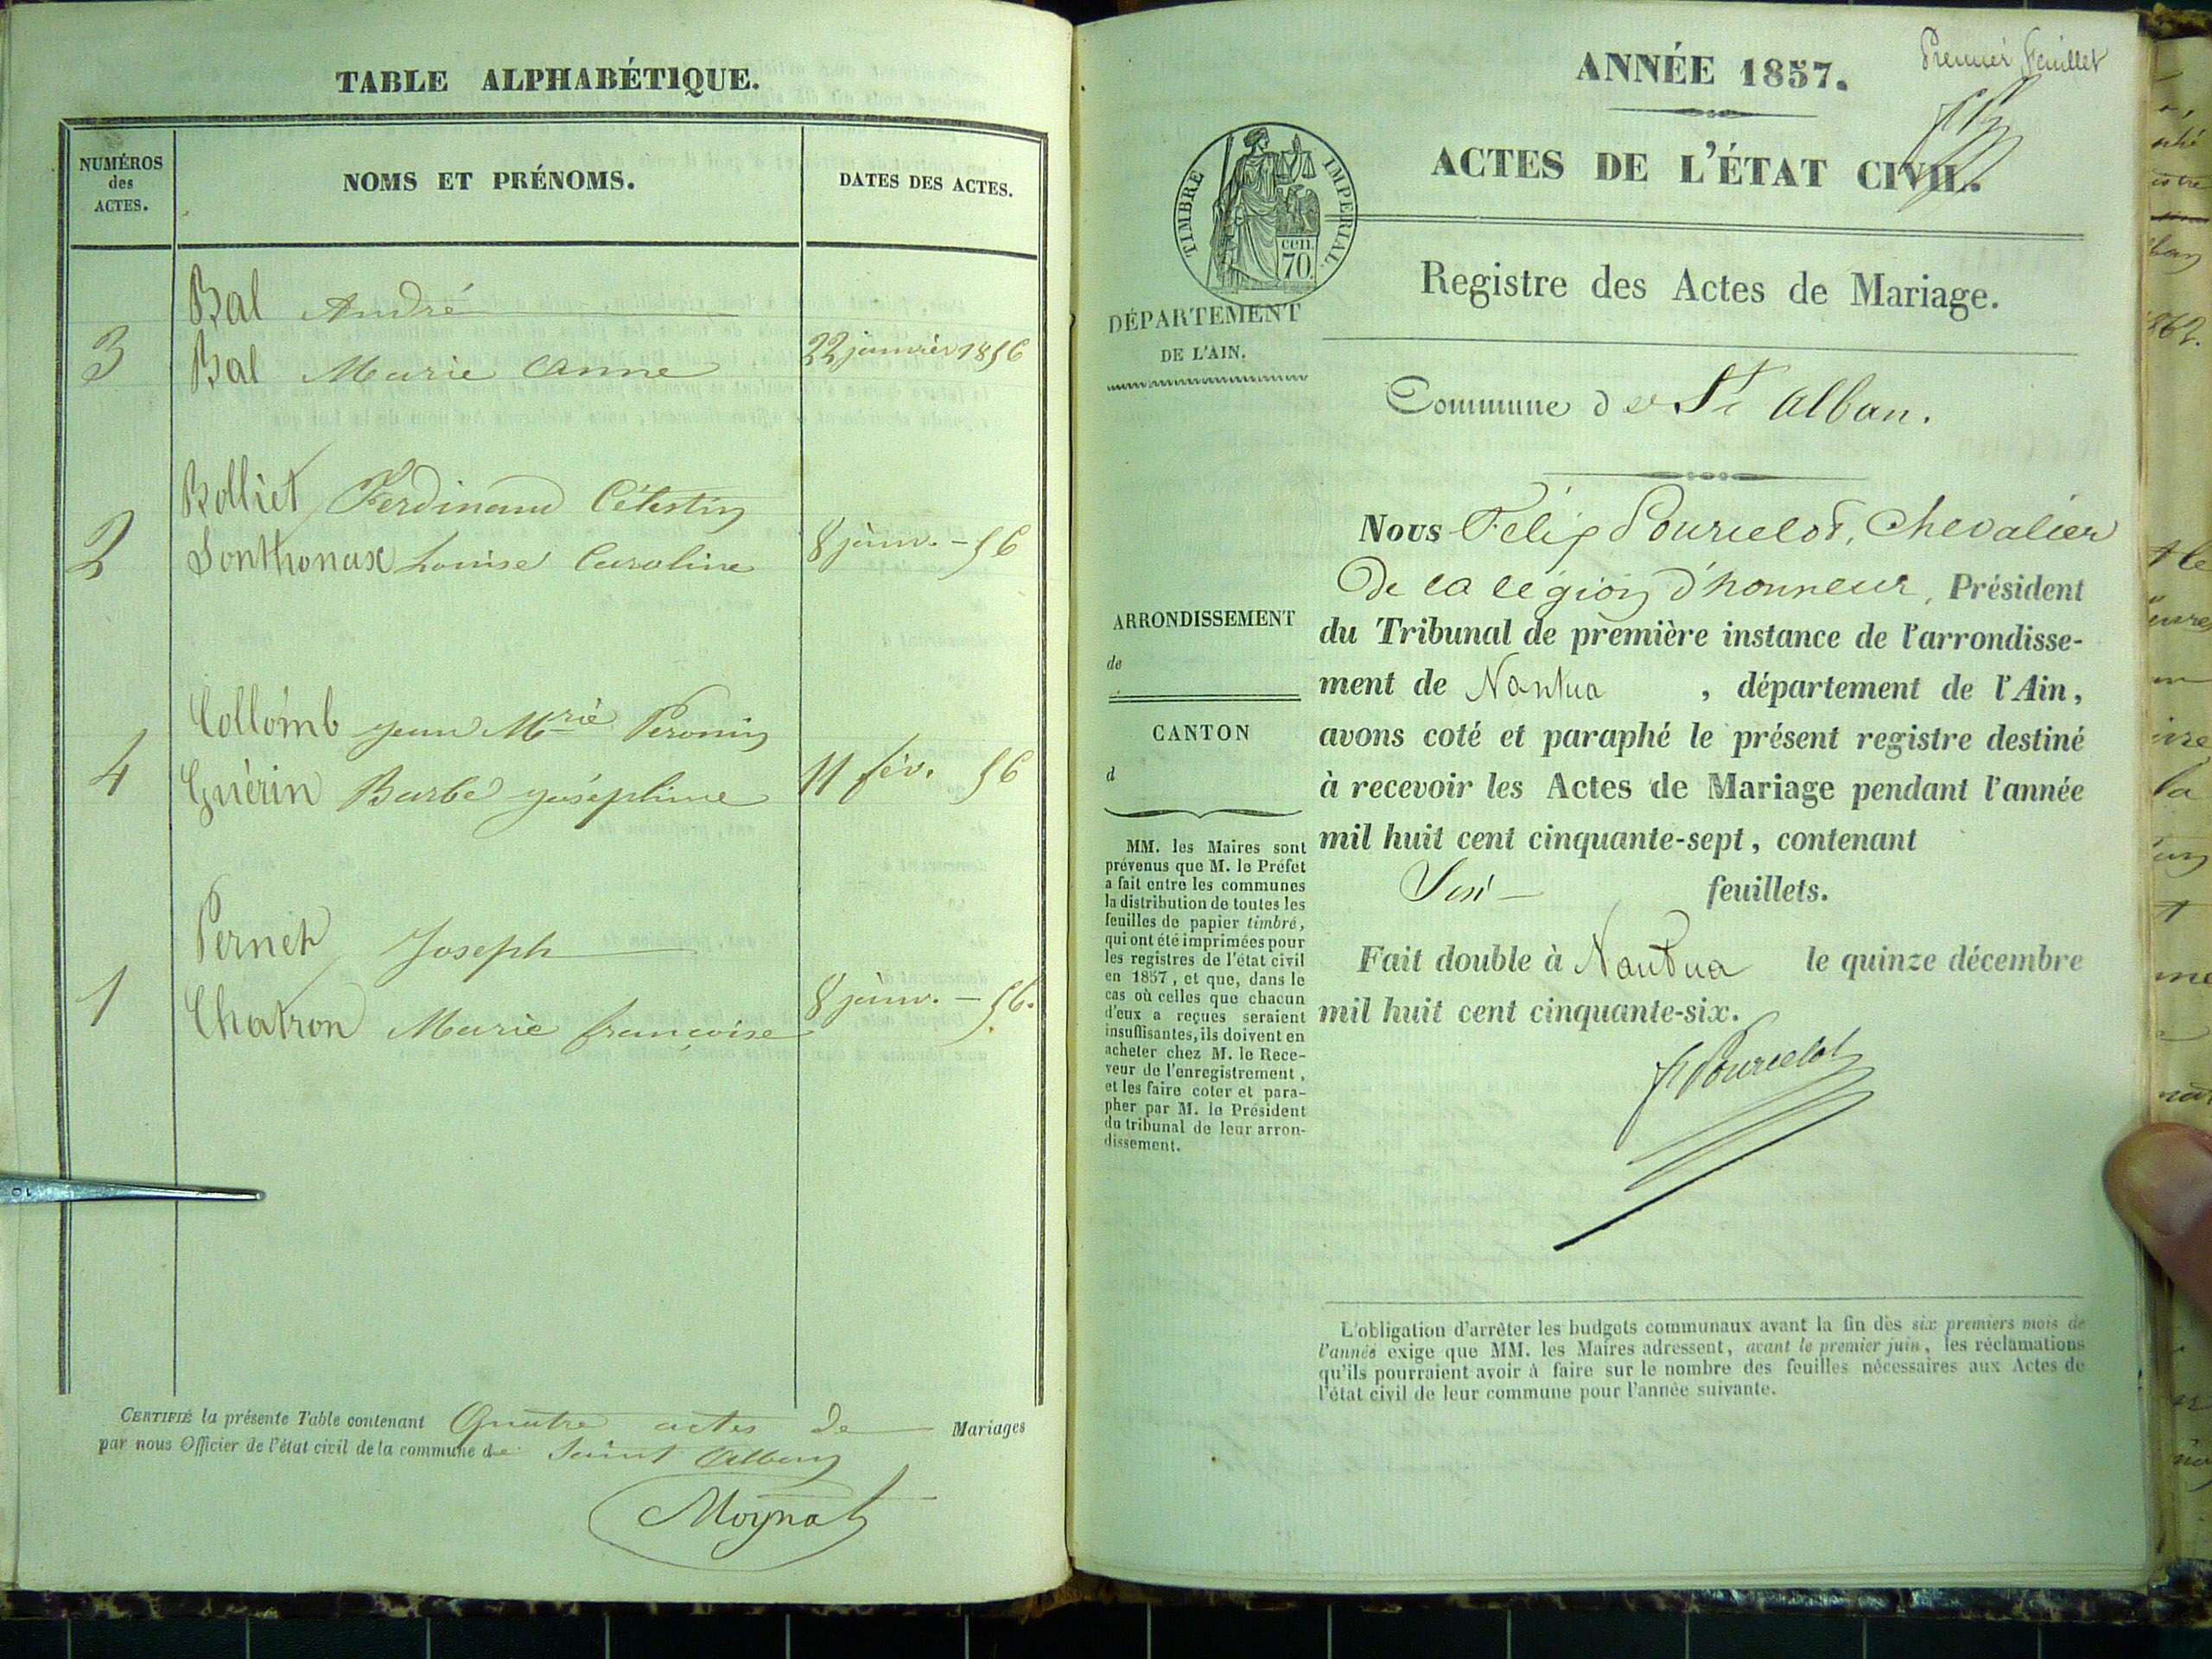 TABLE ALPHABÉTIQUE.
NUMÉROS
des
ACTES.
NOMS ET PRÉNOMS.
DATES DES ACTES.
Bal André
3 Bal Marie Anne 22 janvier 1856
Bolliet Ferdinand Célestin
2 Sonthonax Louise Caroline 8 janv. - 56
Collomb Jean Mrie Peronin
4 Guérin Barbe Joséphine 11 fév. 56
Pernet Joseph
1 Chatron Marie françoise 8 janv. - 56.
CERTIFIÉ la présente Table contenant Quatre actes de Mariages
par nous Officier de l'état civil de la commune de Saint Alban
Moynat
Premier feuillet
ANNÉE 1857.
ACTES DE L'ÉTAT CIVIL.
TIMBRE IMPERIAL.
cen.
70.
Registre des Actes de Mariage.
DÉPARTEMENT
DE L'AIN.
Commune de St Alban.
ARRONDISSEMENT
de
CANTON
d
MM. les Maires sont
prévenus que M. le Préfet
a fait entre les communes
la distribution de toutes les
feuilles de papier timbré,
qui ont été imprimées pour
les registres de l'état civil
en 1857, et que, dans le
cas où celles que chacun
d'eux a reçues seraient
insuffisantes, ils doivent en
acheter chez M. le Rece-
veur de l'enregistrement,
et les faire coter et para-
pher par M. le Président
du tribunal de leur arron-
dissement.
Nous Félix Pourcelot, Chevalier
De la légion d'honneur, Président
du Tribunal de première instance de l'arrondisse-
ment de Nantua, département de l'Ain,
avons coté et paraphé le présent registre destiné
à recevoir les Actes de Mariage pendant l'année
mil huit cent cinquante-sept, contenant
feuillets.
Fait double à Nantua le quinze décembre
mil huit cent cinquante-six.
F Pourcelot
L'obligation d'arrêter les budgets communaux avant la fin des six premiers mois de
l'année exige que MM. les Maires adressent, avant le premier juin, les réclamations
qu'ils pourraient avoir à faire sur le nombre des feuilles nécessaires aux Actes de
l'état civil de leur commune pour l'année suivante.